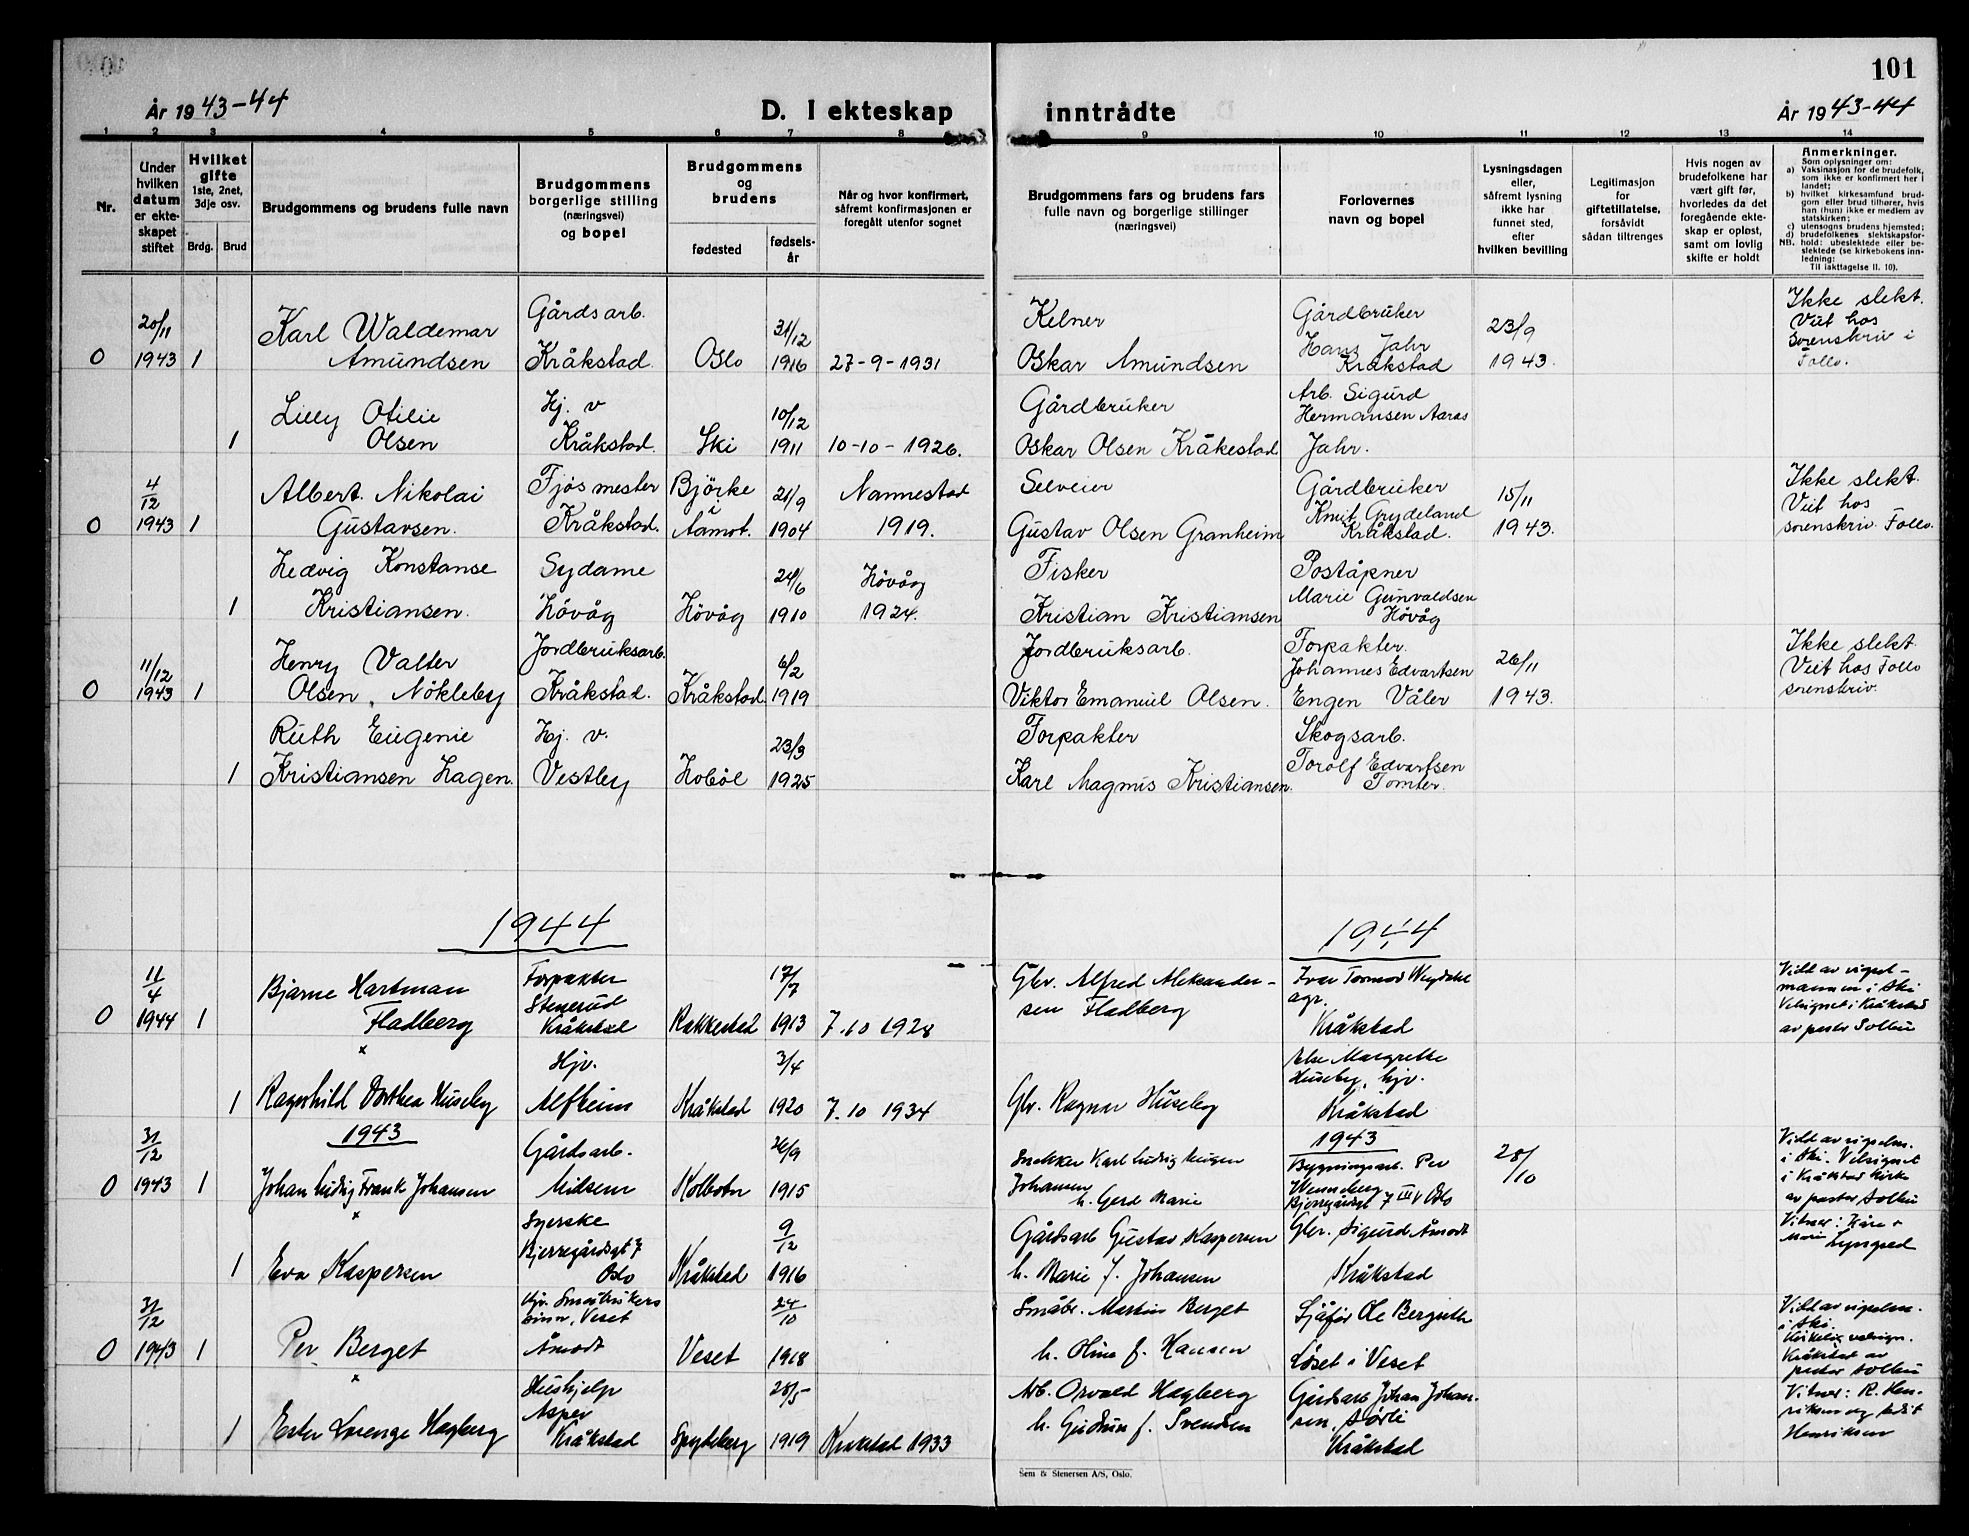 101
År 1943-44
D. I ekteskap inntrådte
År 1943-44
1 2 3 4 5 6 7 8 9 10 11 12 13 14
Nr.
Under hvilken datum er ekteskapet stiftet
Hvilket gifte
1ste, 2net, 3dje osv.
Brdg. Brud
Brudgommens og brudens fulle navn
Brudgommens borgerlige stilling (næringsvei) og bopel
Brudgommens og brudens
fødested
fødselsår
Når og hvor konfirmert, såfremt konfirmasjonen er foregått utenfor sognet
Brudgommens fars og brudens fars fulle navn og borgerlige stillinger (næringsvei)
Forlovernes navn og bopel
Lysningsdagen eller, såfremt lysning ikke har funnet sted, efter hvilken bevilling
Legitimasjon for giftetillatelse, forsåvidt sådan tiltrenges
Hvis nogen av brudefolkene har vært gift før, hvorledes da det foregående ekteskap er opløst, samt om lovlig skifte er holdt
Anmerkninger.
Som oplysninger om:
a) Vaksinasjon for de brudefolk, som ikke er konfirmert her i landet;
b) hvilket kirkesamfund brudgom eller brud tilhører, hvis han (hun) ikke er medlem av statskirken;
c) utensogns brudens hjemsted;
d) brudefolkenes slektskapsforhold: ubeslektede eller beslektede (se kirkebokens innledning:
NB. Til iakttagelse II. 10).
0 20/11 1943 1 Karl Waldemar Amundsen Gårdsarb. Kråkstad Oslo 31/12 1916 27-9-1931 Kelner Oskar Amundsen Gårdbruker Hans Jahr Kråkstad 23/9 1943. Ikke slekt. Viet hos Sorenskriv i Follo.
1 Lilly Otilie Olsen Hj. v Kråkstad. Ski 10/12 1911 10-10-1926. Gårdbruker Oskar Olsen Kråkestad Arb. Sigurd Hermansen Aaras Jahr.
0 4/12 1943 1 Albert Nikolai Gustavsen. Fjösmester Kråkstad. Björke i Aamot. 21/9 1904 Nannestad 1919. Selveier Gustav Olsen Granheim Gårdbruker Knut Grydeland Kråkstad. 15/11 1943. Ikke slekt. Viet hos sorenskriv. Follo.
1 Hedvig Konstanse Kristiansen. Sydame Hövåg Hövåg 24/6 1910 Hövåg 1924. Fisker Kristian Kristiansen Poståpner Marie Gunvaldsen Hövåg
0 11/12 1943 1 Henry Valter Olsen, Nökleby Jordbruksarb. Kråkstad. Kråkstad. 6/2 1919 Jordbruksarb. Viktor Emanuel Olsen. Forpakter. Johannes Edvartsen Engen Våler 26/11 1943. Ikke slekt. Viet hos Follo sorenskriv.
1 Ruth Eugenie Kristiansen Hagen. Hj. v. Vestby Hobøl 23/3 1925 Forpakter Karl Magnus Kristiansen. Skogsarb. Torolf Edvartsen Tomter.
1944 1944
0 11/4 1944 1 Bjarne Hartman Fladberg Forpakter Stenerud Kråkstad Rakkestad 17/7 1913 7.10 1928 Gbr. Alfred Aleksandersen Fladberg Ivar Tormod agr. Kråkstad Viet av i Ski Velsignet i Kråkstad av pastor Solbu
x
1 Ragnhild Dorthea Huseby Hjv. Alfheim Kråkstad 3/4 1920 7.10 1934 Gbr. Ragnar Huseby Else Margrethe Huseby, hjv. Kråkstad
1943 1943
0 31/12 1943 1 Johan Ludvig Frank Johansen Gårdsarb. Kolbotn 26/9 1915 Snekker Karl Ludvig Johansen h. Gerd Marie Bygningsarb. Per Wenneberg Bjerregårdsgt 7 III V Oslo 28/10 i Ski. Velsignet i Kråkstad Kirke av pastor Solbu
x
1 Eva Kaspersen Syerske Bjerregårdsgt 7 Oslo Kråkstad 9/12 1916 Gårdsarb Gustav Kaspersen h. Marie f. Johansen Gbr. Sigurd Åmodt Kråkstad Vitner: Kåre + Marie
0 31/12 1943 1 Per Berget Åmodt Veset 24/10 1918 Småbr. Martin Berget h. Oline f. Hansen Sjåför Ole Løset i Veset i Ski. Kirkelig velsign. Kråkstad av pastor Solbu
x
1 Ester Lorenge Hagberg Hushjelp Asper Kråkstad Spydeberg 28/5 1919 Kråkstad 1933 Arb. Osvald Hagberg h. Gudrun f. Svendsen Gårdsarb Johan Johansen, Sørli Kråkstad Vitner: R. Henriksen og Henriksen
Sem & Stenersen A/S, Oslo.